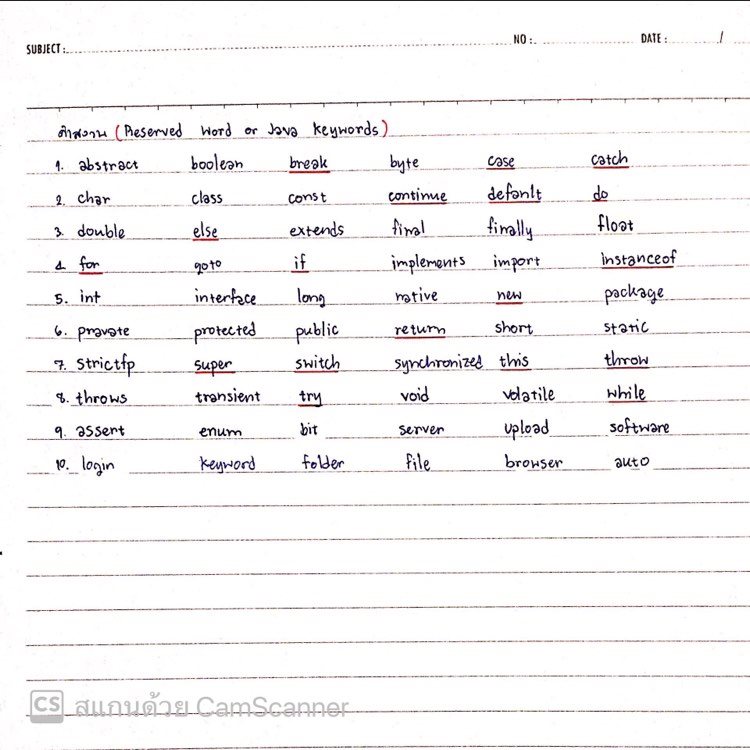 SUBJECT : NO : DATE : /
คำสงวน (Reserved Word or Java Keywords)
1. abstract boolean break byte case catch
2. char class const continue default do
3. double else extends final finally float
4. for goto if implements import instanceof
5. int interface long native new package
6. pravate protected public return short static
7. strictfp super switch synchronized this throw
8. throws transient try void volatile while
9. assert enum bit server upload software
10. login keyword folder file browser auto
CS สแกนด้วย CamScanner